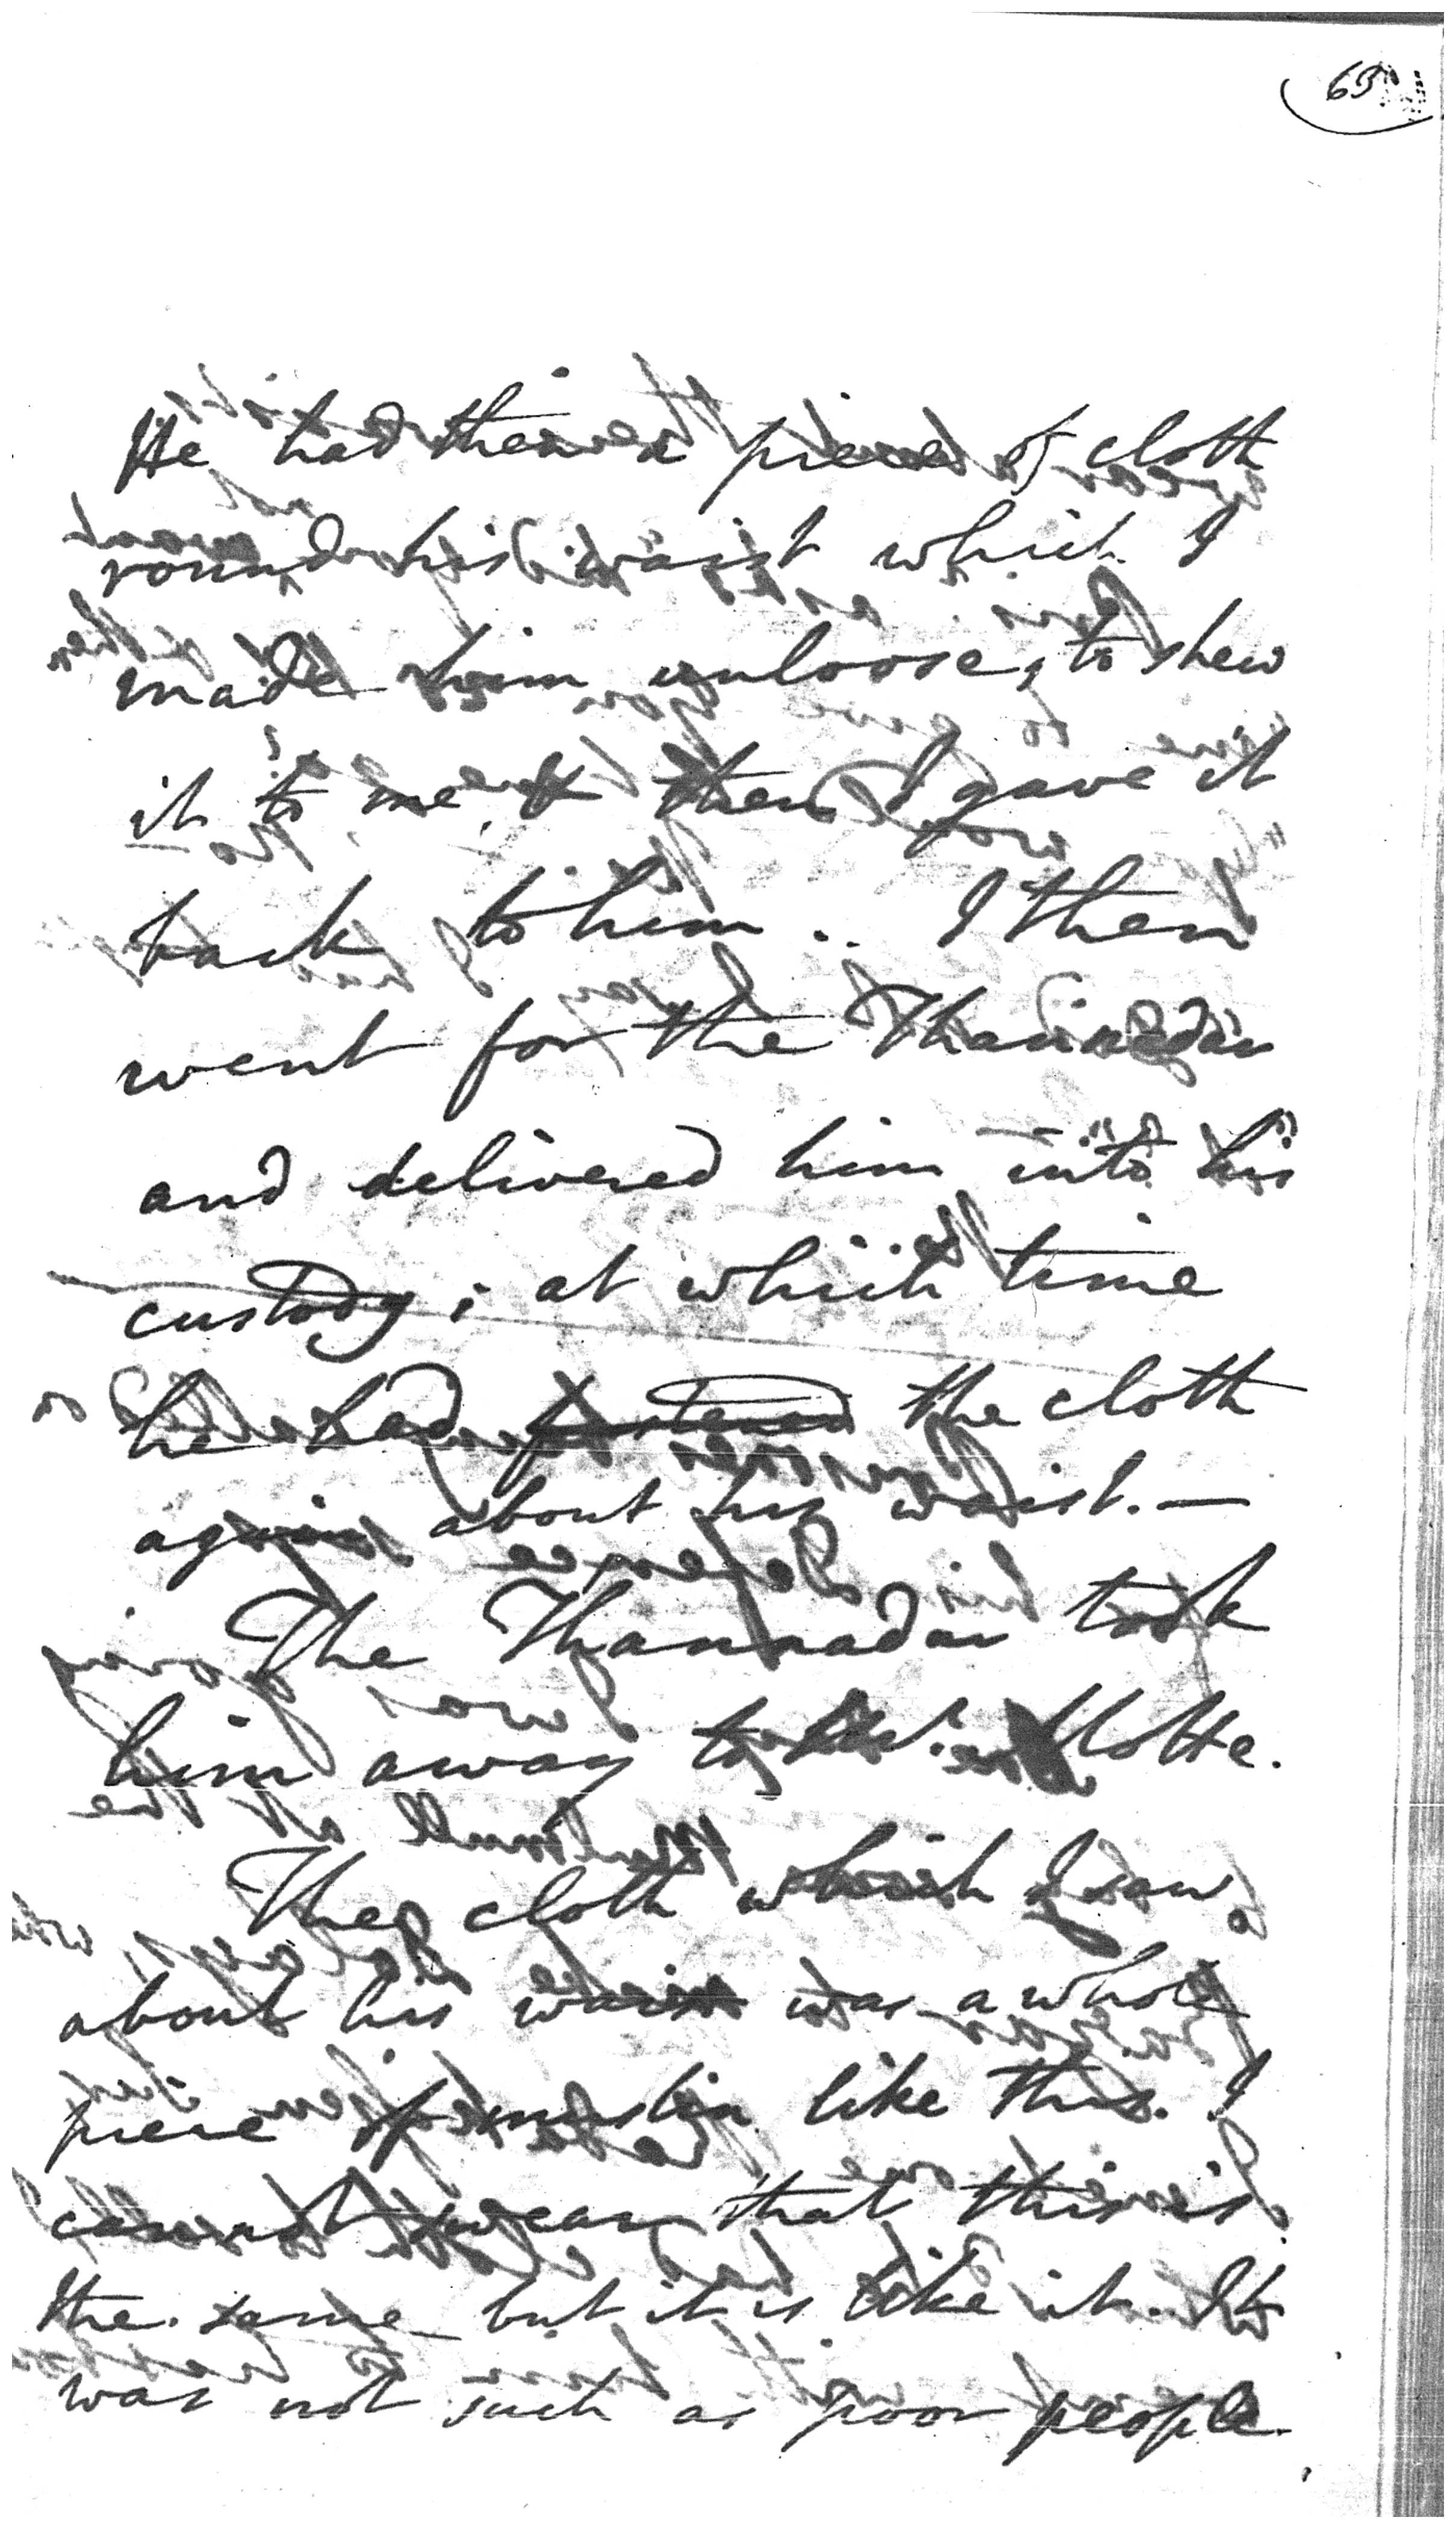 65
He had then a piece of cloth
round his waist which I
made him unloose, to shew
it to me, & then I gave it
back to him.. I then
went for the Thannadar
and delivered him into his
custody; at which time
he had fastened the cloth
again about his waist. —
The Thannadar took
him away to the Cotte.
The cloth which I saw
about his waist was a whole
piece of muslin like this. I
can not swear that this is
the same — but it is like it. It
was not such as poor people